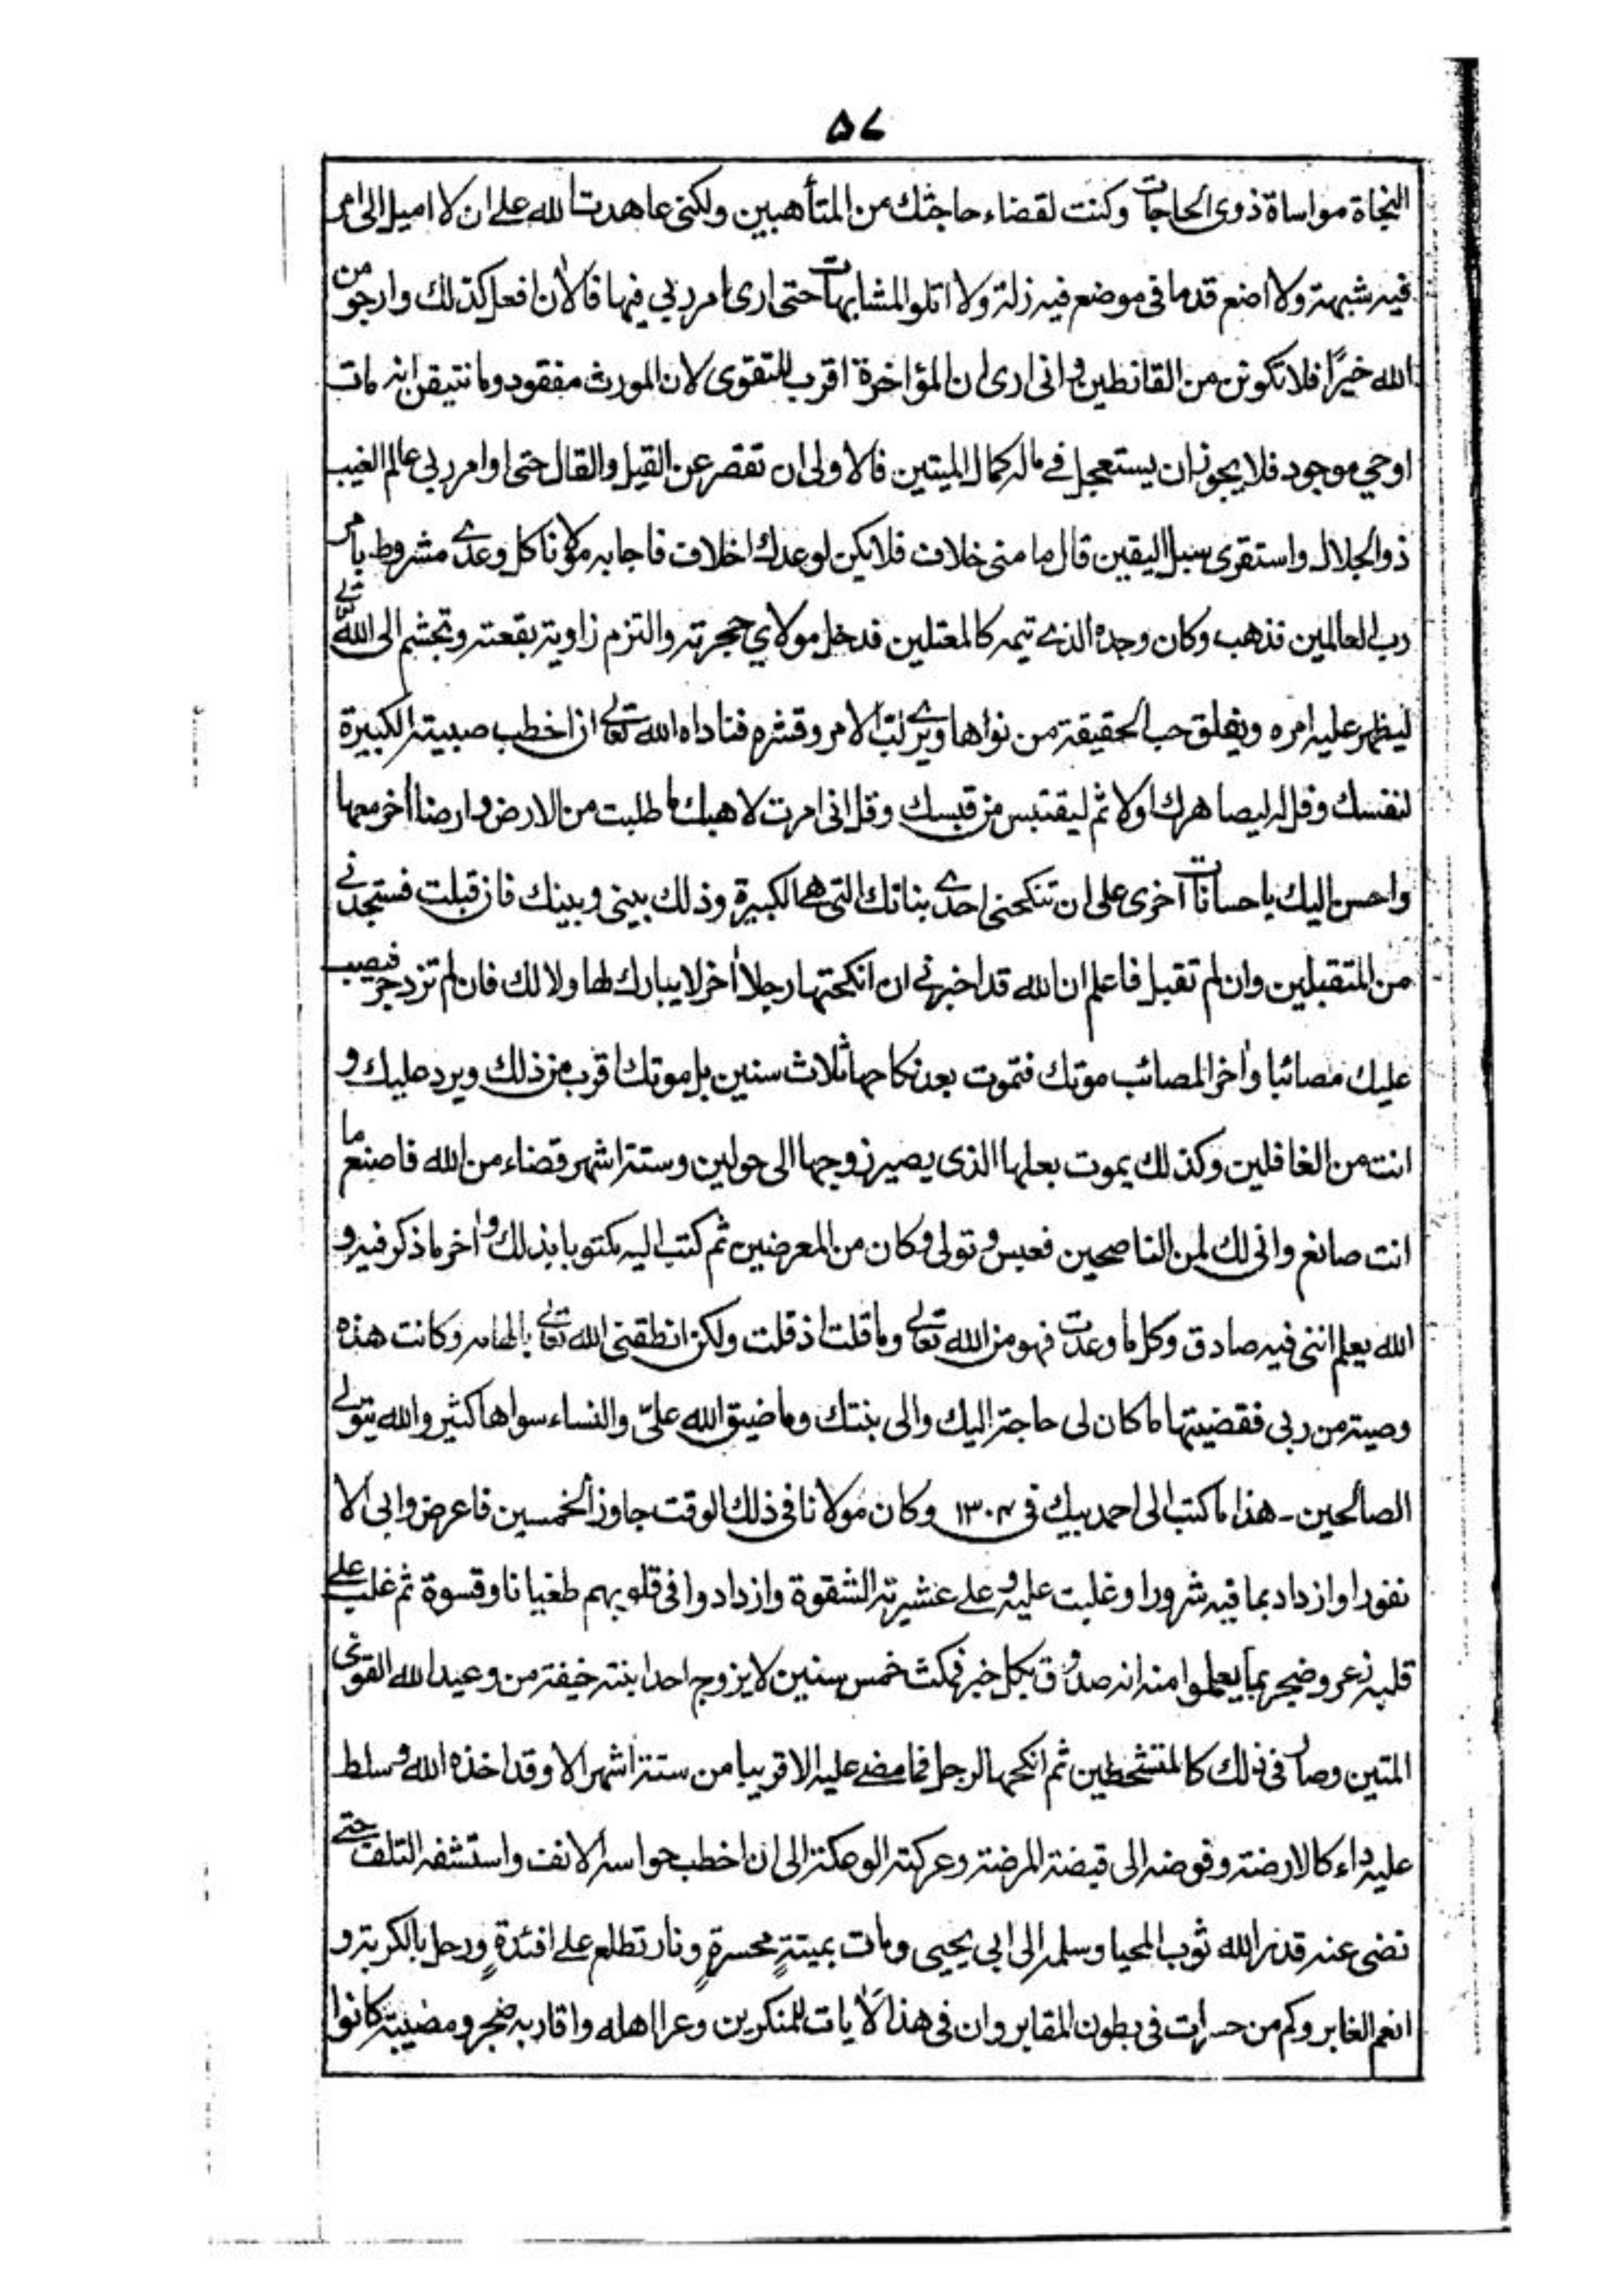 ۵۷
النجاة مواساة ذوى الحاجات وكنت لقضاء حاجتك من المتأهبين ولكنى عاهدت الله على ان لا اميل الى امر
فيه شبهة ولا اضع قدما فى موضع فيه زلة ولا اتلو المتشابهات حتى ارى امر ربي فيها فالاٰن افعل كذلك وارجو من
الله خيرًا فلا تكونن من القانطين و انى ارى ان المؤاخرة اقرب للتقوى لان المورث مفقود وما نتيقن انه مات
او حي موجود فلا يجوز ان يستعجل فى ماله كمال الميتين فالاولى ان تقصر عن القيل والقال حتى اوامر ربى عالم الغيب
ذو الجلال واستقرى سبل اليقين قال ما منى خلاف فلا يكن لوعدك اخلاف فاجابه مولانا كل وعدى مشروط بامر
رب العالمين فذهب وكان وجده الذى تيمه كالمعتلين فدخل مولاي حجرته والتزم زاوية بقعته وتجشم الى الله تعالى
ليظهر عليه امره ويفلق حب الحقيقة من نواها ويرى لبّ الامر وقشره فناداه الله تعالى ان اخطب صبيته الكبيرة
لنفسك وقل له ليصاهرك اولا ثم ليقتبس من قبسك وقل انى امرت لاهبك ما طلبت من الارض و ارضا اخر معها
واحسن اليك باحسانات اخرى على ان تنكحنى احدى بناتك التى هى الكبيرة وذلك بينى وبينك فان قبلت فستجدنى
من المتقبلين وان لم تقبل فاعلم ان الله قد اخبرنى ان انكحتها رجلا اٰخر لا يبارك لها ولا لك فان لم تزدجر فيصب
عليك مصائبا واٰخر المصائب موتك فتموت بعد نكاحها ثلاث سنين بل موتك اقرب من ذلك ويرد عليك و
انت من الغافلين وكذلك يموت بعلها الذى يصير زوجها الى حولين وستة اشهر قضاء من الله فاصنع ما
انت صانع وانى لك لمن الناصحين فعبس و تولى وكان من المعرضين ثم كتب اليه مكتوبا بذلك و اٰخر ما ذكر فيه و
الله يعلم اننى فيه صادق وكل ما وعدت فهو من الله تعالى وما قلت اذ قلت ولكن انطقنى الله تعالى بالهامه وكانت هذه
وصية من ربى فقضيتها ما كان لى حاجة اليك والى بنتك وما ضيق الله علىّ والنساء سواها كثير والله يتولى
الصالحين۔ هذا ما كتب الى احمد بيك فى ۱۳۰۴ وكان مولانا فى ذلك الوقت جاوز الخمسين فاعرض وابى الا
نفورا وازداد بما فيه شرورا وغلبت عليه و على عشيرته الشقوة وازدادوا فى قلوبهم طغيانا وقسوة ثم غلب على
قلبه ذعر وضجر بما يعلموا منه انه صدوق بكل خبر فمكث خمس سنين لا يزوج احدا بنته خيفة من وعيد الله القوى
المتين وصار فى ذلك كالمتشحطين ثم انكحها الرجل فما مضى عليه الا قريبا من ستة اشهر الا وقد اخذه الله وسلط
عليه داء كالارضة وفوضه الى قبضة المرضة وعركته الوعكة الى ان اخطب حواسه الانف واستشفه التلف حتى
نضى عنه قدر الله ثوب المحيا وسلمه الى ابى يحيى ومات بميتةٍ محسرةٍ ونار تطلع على افئدةٍ ورحل بالكربة و
انعم الغابر وكم من حسرات فى بطون المقابر وان فى هذا لاٰيات للمنكرين وعرا اهله واقاربه ضجر ومصيبة كانوا